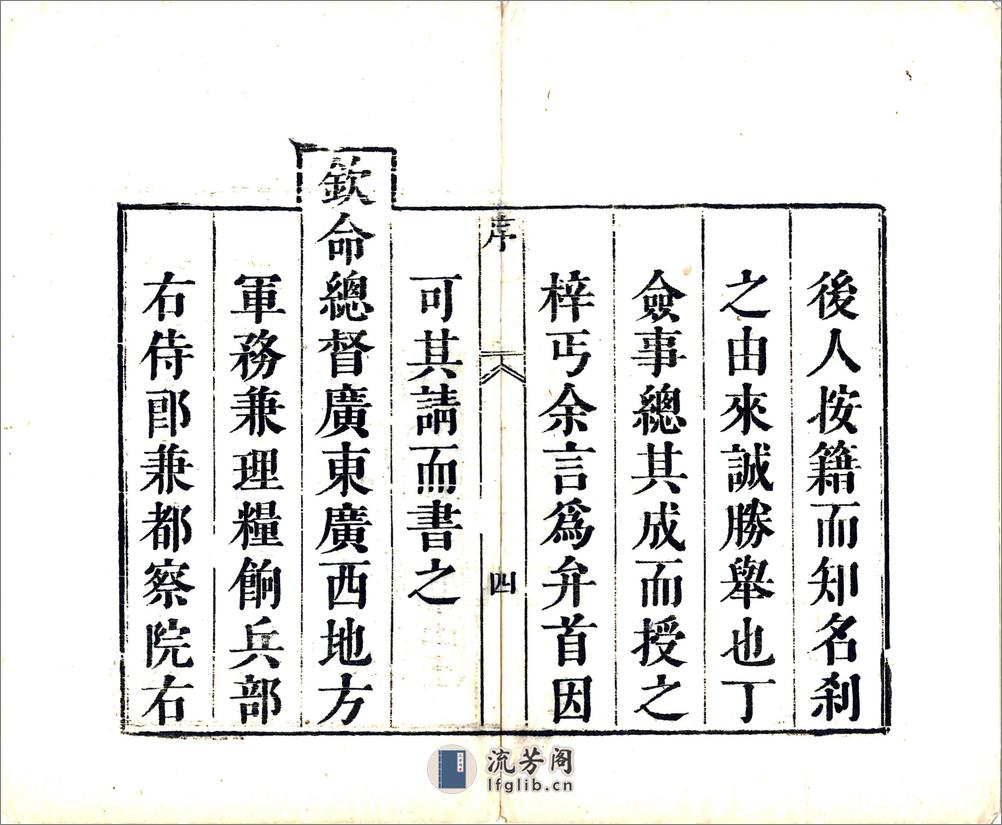 後人按籍而知名刹
之由來誠勝舉也丁
僉事總其成而授之
梓丐余言爲弁首因
序
四
可其請而書之
欽命總督廣東廣西地方
軍務兼理糧餉兵部
右侍郎兼都察院右
流芳阁
lfglib.cn